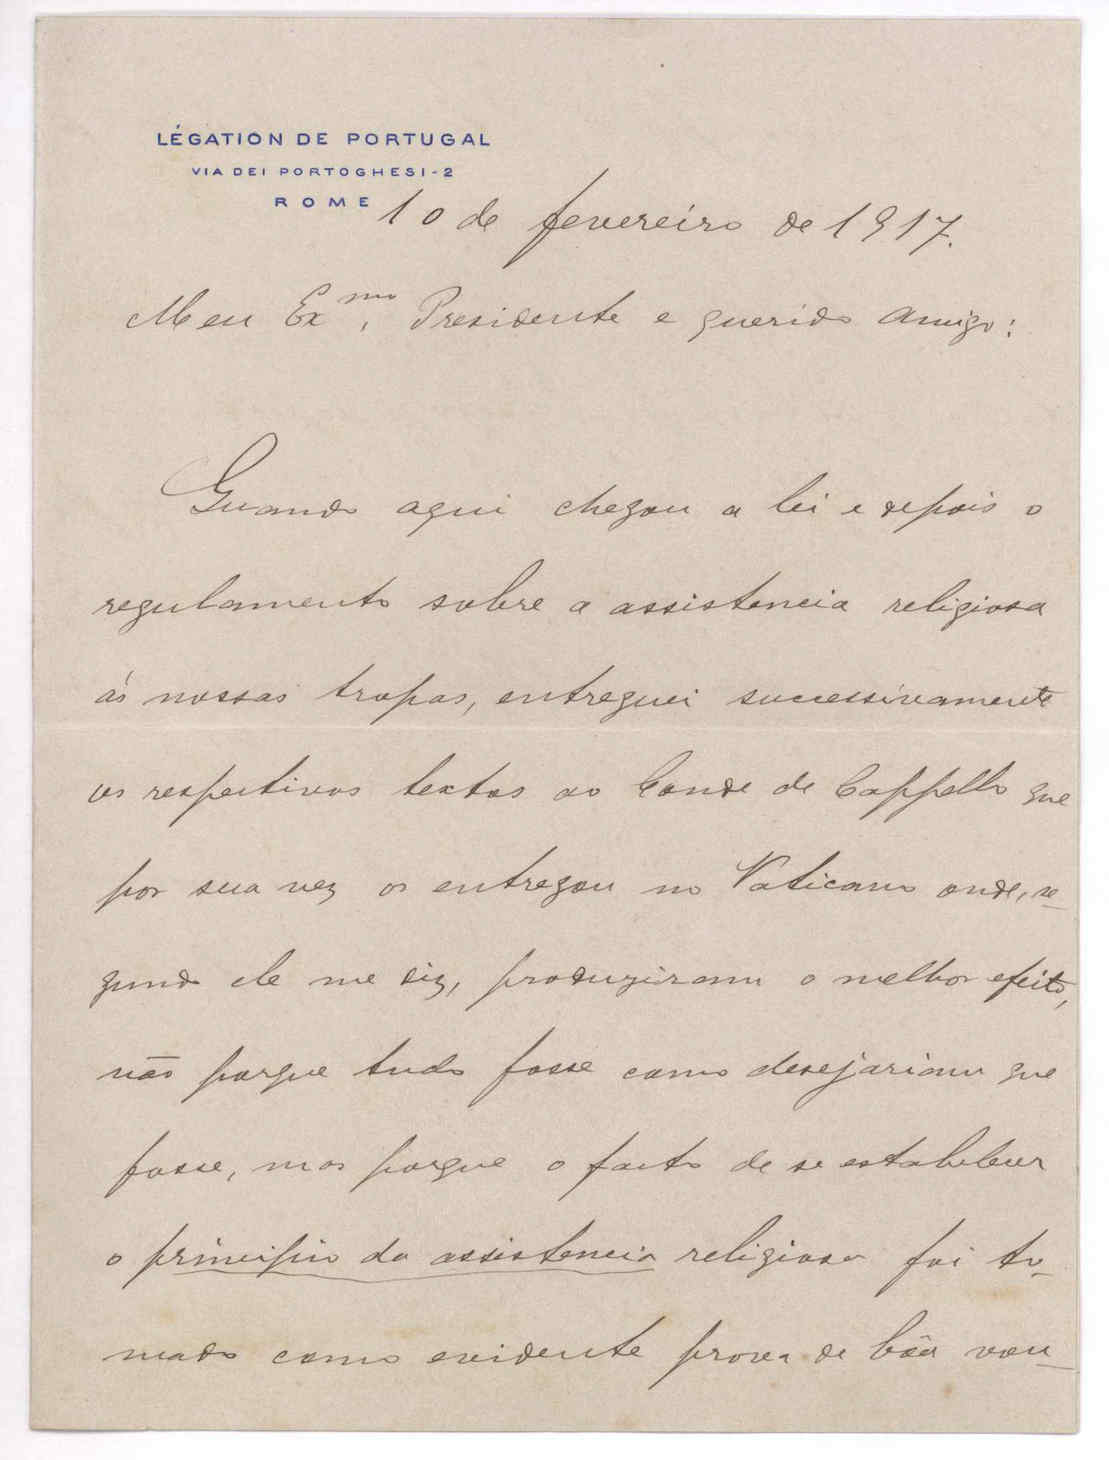 LÉGATION DE PORTUGAL
VIA DEI PORTOGHESI-2
ROME
10 de fevereiro de 1917.
Meu Exmo. Presidente e querido amigo:
Quando aqui chegou a lei e depois o
regulamento sobre a assistencia religiosa
ás nossas tropas, entreguei successivamente
os respectivos textos ao Conde de Cappello que
por sua vez os entregou no Vaticano onde, se-
gundo ele me diz, produziram o melhor efeito,
não porque tudo fosse como desejariam que
fosse, mas porque o facto de se estabelecer
o principio da assistencia religiosa foi to-
mado como evidente prova de bôa von-